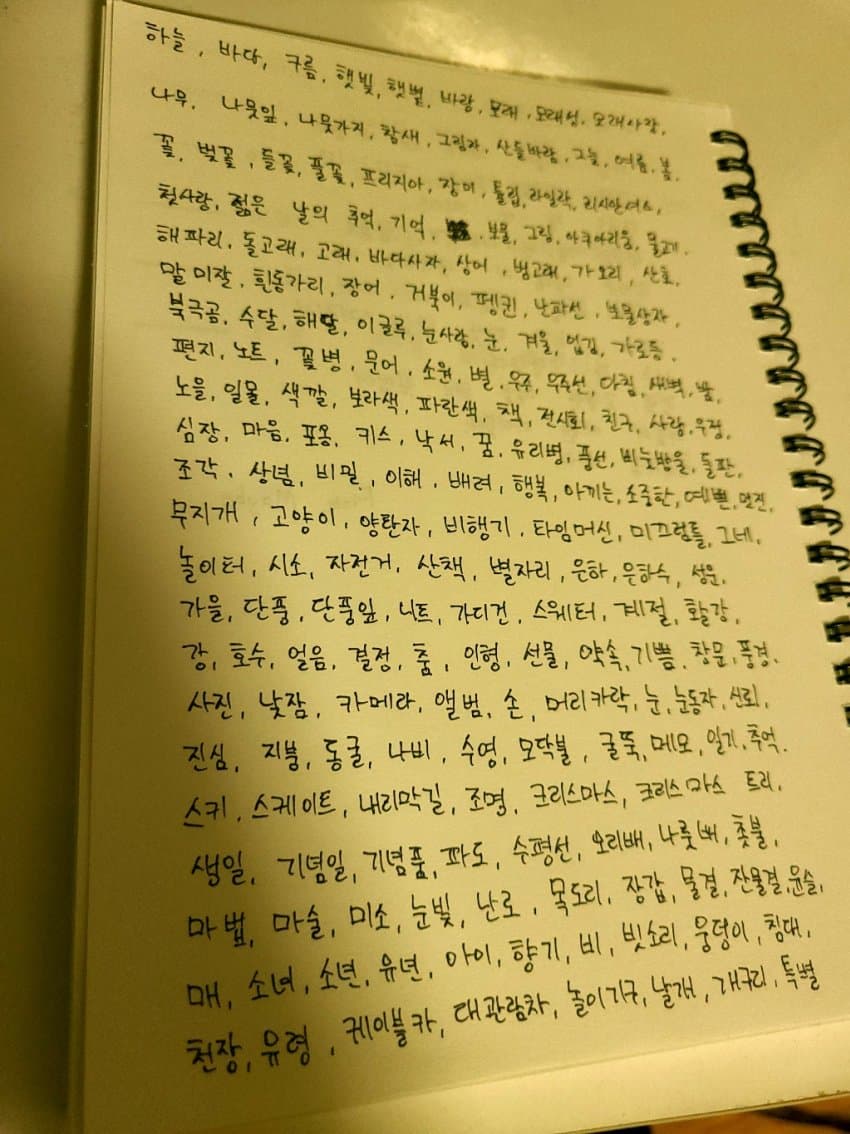 하늘, 바다, 구름, 햇빛, 햇볕, 바람, 모래, 모래성, 모래사장,
나무, 나뭇잎, 나뭇가지, 참새, 그림자, 산들바람, 그늘, 여름, 봄,
꽃, 벚꽃, 들꽃, 풀꽃, 프리지아, 장미, 튤립, 라일락, 리시안셔스,
첫사랑, 젊은 날의 추억, 기억, 보물, 그림, 아쿠아리움, 물고기,
해파리, 돌고래, 고래, 바다사자, 상어, 범고래, 가오리, 산호,
말미잘, 흰동가리, 장어, 거북이, 펭귄, 난파선, 보물상자,
북극곰, 수달, 해달, 이글루, 눈사람, 눈, 겨울, 입김, 가로등,
편지, 노트, 꽃병, 문어, 소원, 별, 우주, 우주선, 다짐, 새벽, 밤,
노을, 일몰, 색깔, 보라색, 파란색, 책, 전시회, 친구, 사랑, 우정,
심장, 마음, 포옹, 키스, 낙서, 꿈, 유리병, 풍선, 비눗방울, 들판,
조각, 상념, 비밀, 이해, 배려, 행복, 아끼는, 소중한, 예쁜, 멋진,
무지개, 고양이, 양탄자, 비행기, 타임머신, 미끄럼틀, 그네,
놀이터, 시소, 자전거, 산책, 별자리, 은하, 은하수, 성운,
가을, 단풍, 단풍잎, 니트, 가디건, 스웨터, 계절, 활강,
강, 호수, 얼음, 결정, 춤, 인형, 선물, 약속, 기쁨, 창문, 풍경,
사진, 낮잠, 카메라, 앨범, 손, 머리카락, 눈, 눈동자, 신뢰,
진심, 지붕, 동굴, 나비, 수영, 모닥불, 굴뚝, 메모, 일기, 추억,
스키, 스케이트, 내리막길, 조명, 크리스마스, 크리스마스 트리,
생일, 기념일, 기념품, 파도, 수평선, 오리배, 나룻배, 촛불,
마법, 마술, 미소, 눈빛, 난로, 목도리, 장갑, 물결, 잔물결, 윤슬,
매, 소녀, 소년, 유년, 아이, 향기, 비, 빗소리, 웅덩이, 침대,
천장, 유령, 케이블카, 대관람차, 놀이기구, 날개, 개구리, 특별